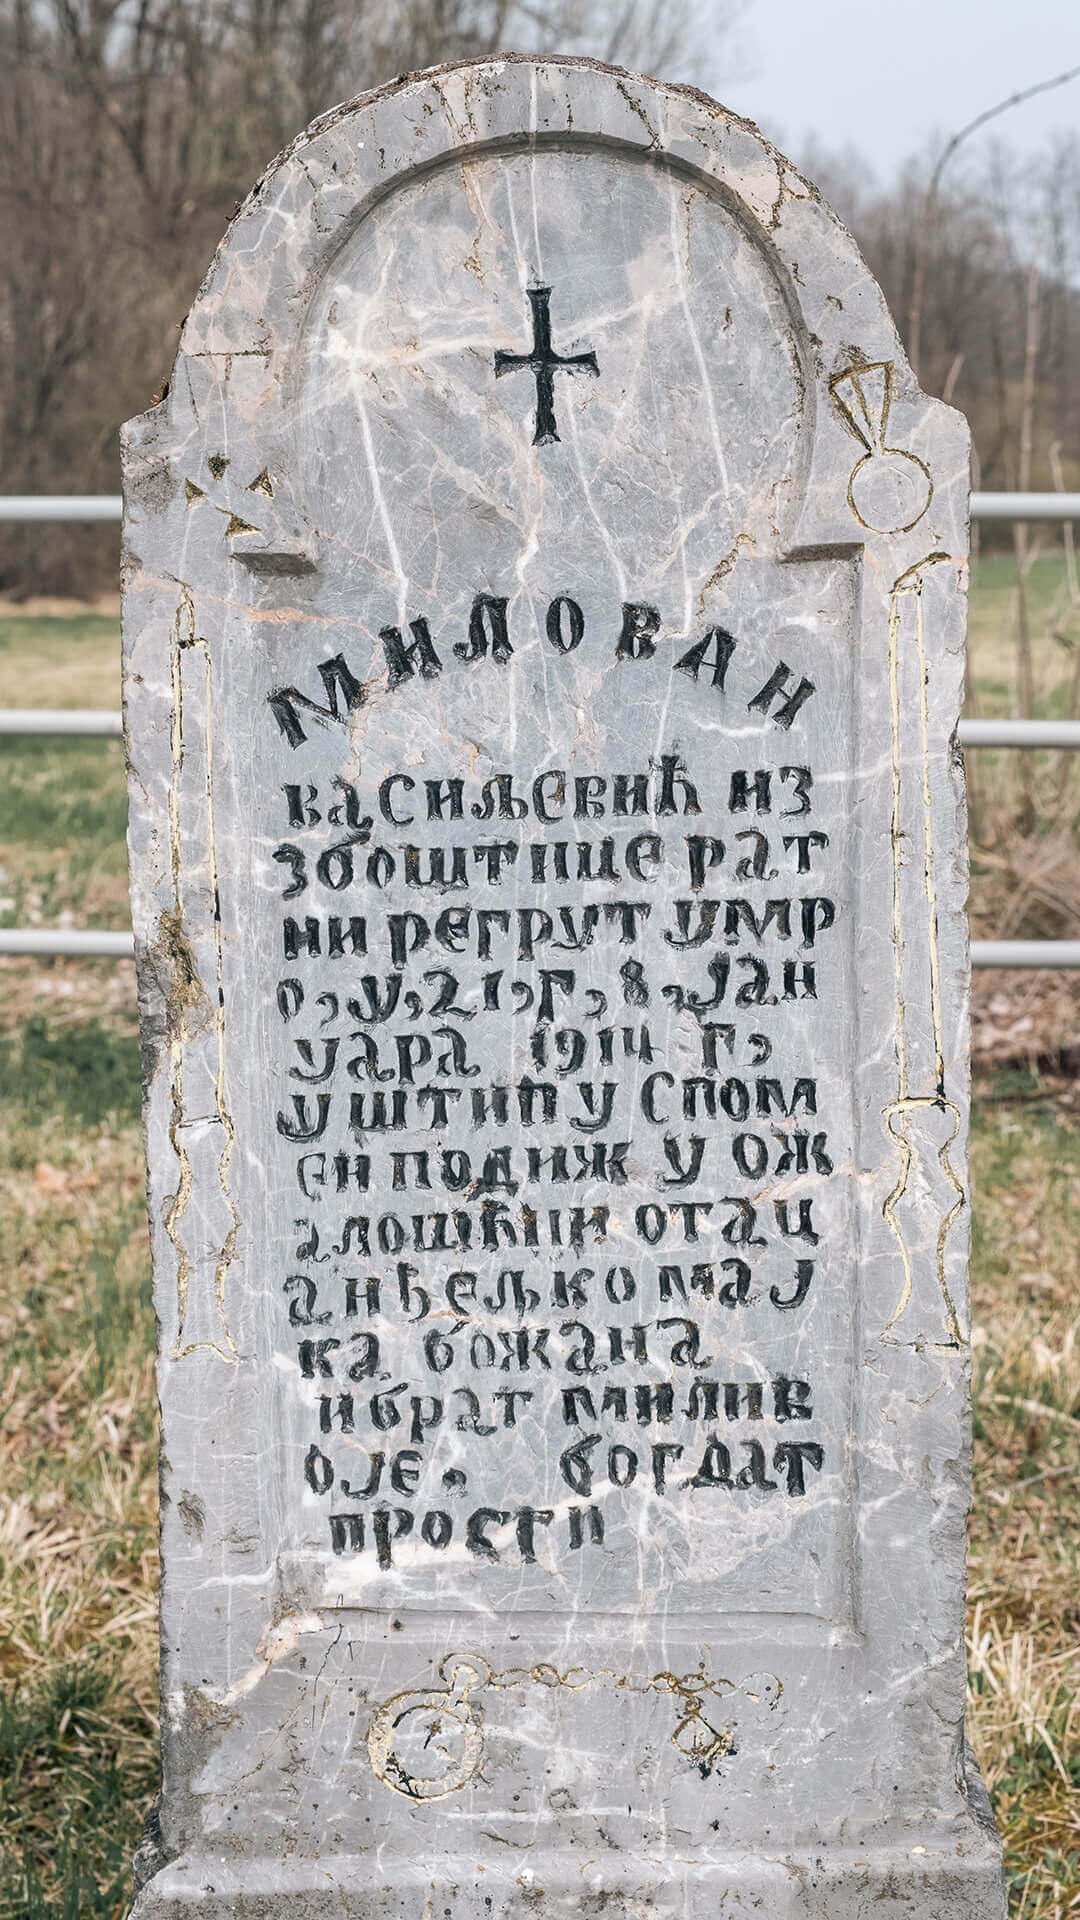 МИЛОВАН
ВАСИЉЕВИЋ ИЗ
ЗБОШТНИЦЕ РАТ
НИ РЕГРУТ УМР
О, У, 21, Г, 8, ЈАН
УАРА 1914 Г,
У ШТИПУ СПОМ
ЕН ПОДИЖУ ОЖ
АЛОШЋНИ ОТАЦ
АНЂЕЉКО МАЈ
КА БОЖАНА
И БРАТ МИЛИВ
ОЈЕ. БОГ ДАТ
ПРОСТИ